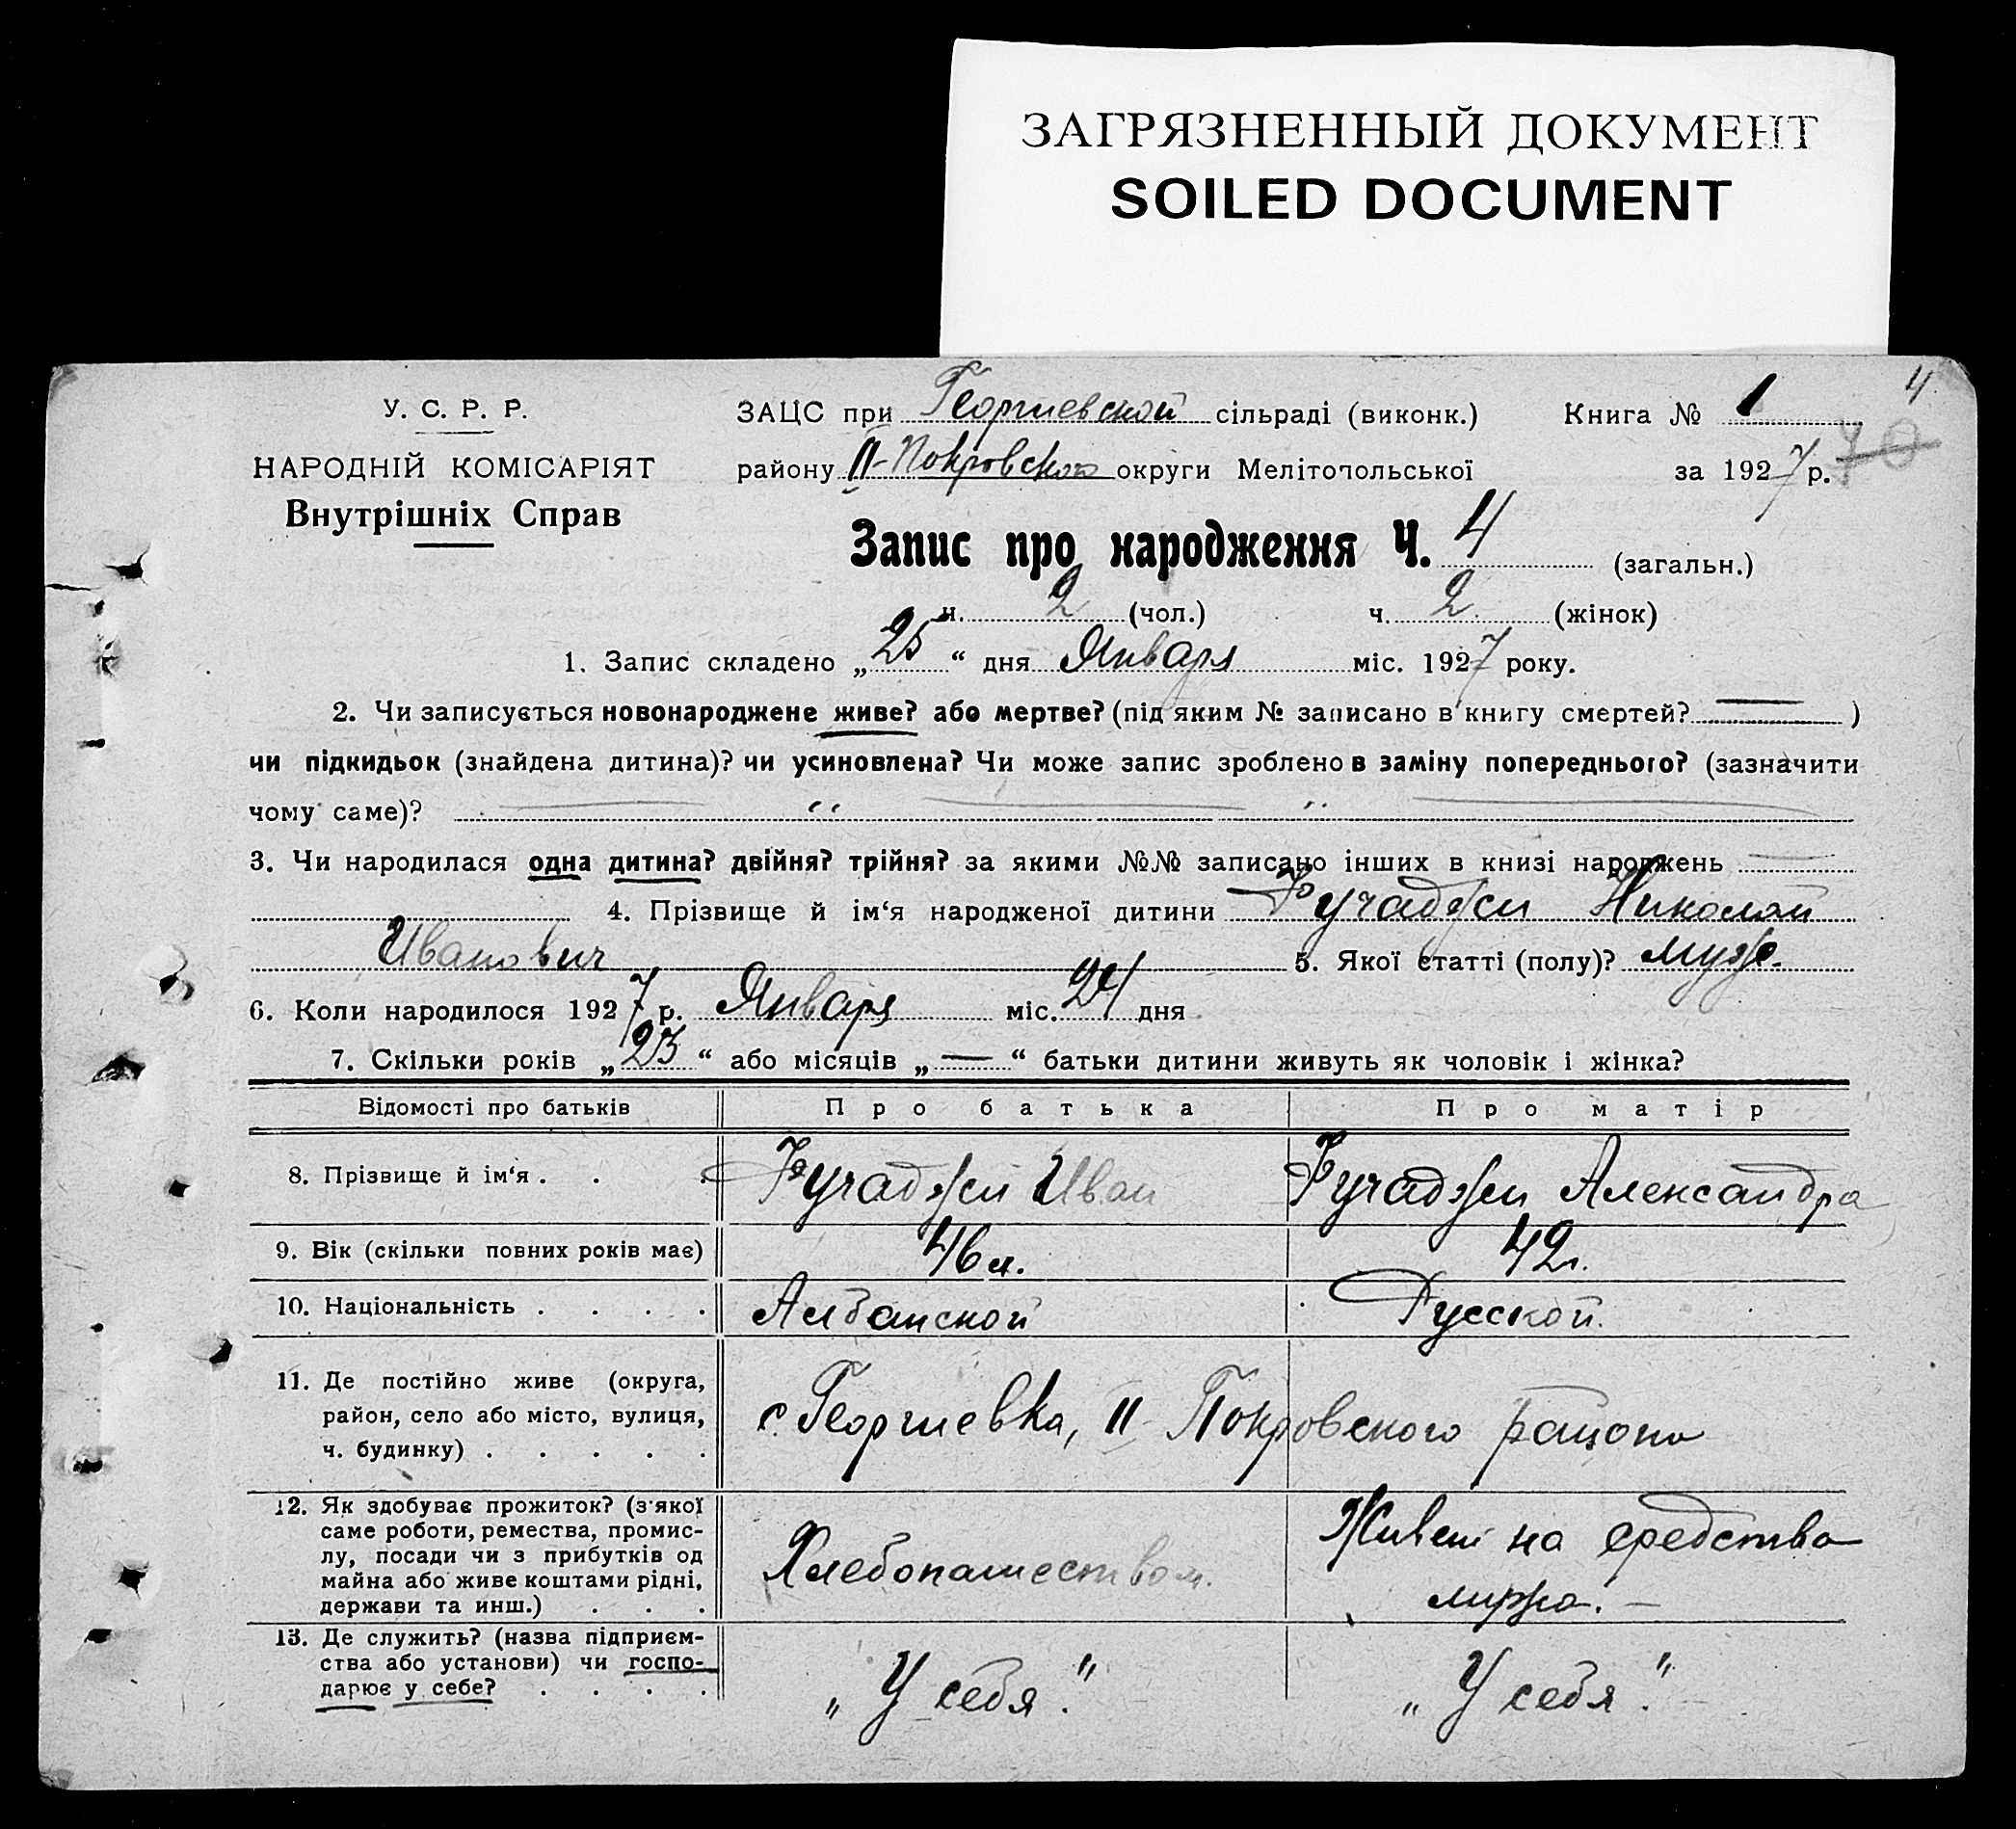 ЗАГРЯЗНЕННЫЙ ДОКУМЕНТ
SOILED DOCUMENT
4
У. С. Р. Р.
НАРОДНІЙ КОМІСАРІЯТ
Внутрішніх Справ
ЗАЦС при Георгиевской сільраді (виконк.) Книга № 1
району II-Покровского округи Мелітопольської за 1927 р. 70
Запис про народження Ч. 4 (загальн.)
ч. 2 (чол.) ч. 2 (жінок)
1. Запис складено „25“ дня Января міс. 1927 року.
2. Чи записується новонароджене живе? або мертве? (під яким № записано в книгу смертей? — )
чи підкидьок (знайдена дитина)? чи усиновлена? Чи може запис зроблено в заміну попереднього? (зазначити
чому саме)? — “ — “ —
3. Чи народилася одна дитина? двійня? трійня? за якими №№ записано інших в книзі народжень —
4. Прізвище й ім‘я народженої дитини Фучаджи Николай
Иванович 5. Якої статті (полу)? муж.
6. Коли народилося 1927 р. Января міс. 24 дня
7. Скільки років „23“ або місяців „—“ батьки дитини живуть як чоловік і жінка?
Відомості про батьків Про батька Про матір
8. Прізвище й ім‘я . . . Фучаджи Иван Фучаджи Александра
9. Вік (скільки повних років має) 46 л. 42 л.
10. Національність . . . . Албанской Русской.
11. Де постійно живе (округа,
район, село або місто, вулиця,
ч. будинку) . . . . .
с. Георгиевка, II-Покровского района
12. Як здобуває прожиток? (з якої
саме роботи, ремества, промис-
лу, посади чи з прибутків од
майна або живе коштами рідні,
держави та инш.) . . .
Хлебопашеством.
Живет на средства
мужа. —
13. Де служить? (назва підприєм-
ства або установи) чи госпо-
дарює у себе? . . . .
„У себя.“ „У себя.“